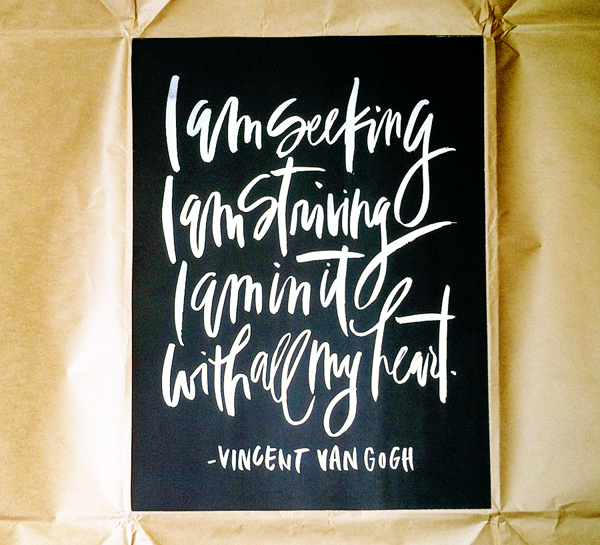 I am seeking
I am striving
I am in it
with all my heart.
-VINCENT VAN GOGH